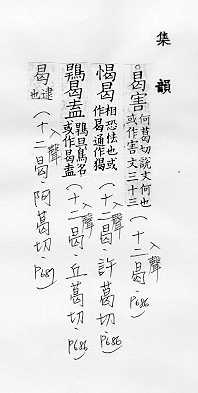 集韻
曷害何葛切說文何也或作害文三十三(入聲十二曷.P686)
愒曷相恐怯也或作曷通作猲(入聲十二曷.許葛切.P686)
鶡曷盍鶡鴠鳥名或作曷盍(入聲十二曷.丘葛切.P686)
曷逮也(入聲十二曷 阿葛切.P687)